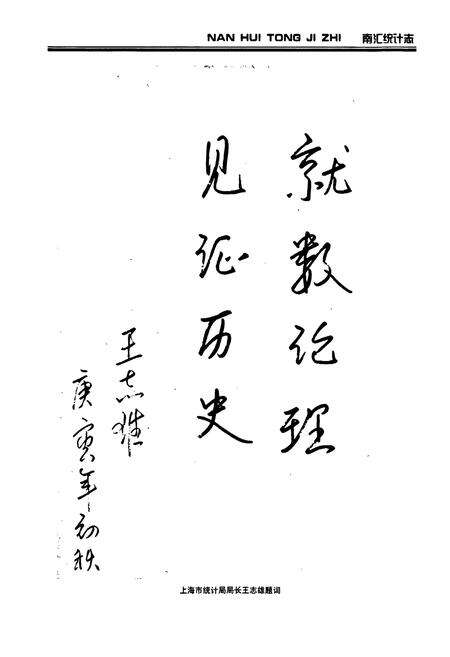 NAN HUI TONG JI ZHI 南汇统计志
就数论理
见证历史
王志雄
庚寅年初秋
上海市统计局局长王志雄题词